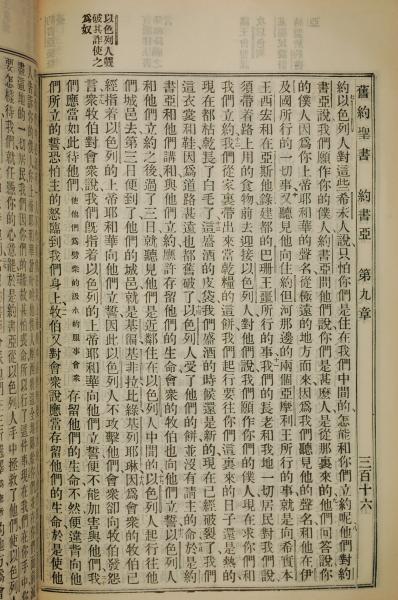 舊約聖書 約書亞 第九章 三百十六
約以色列人對這些希未人說只怕你們是住在我們中間的怎能和你們立約呢他們對約
書亞說我們願作你的僕人約書亞問他們說你們是甚麼人是從那裏來的他們回答說你
的僕人因爲你上帝耶和華的聲名從極遠的地方而來因爲我們聽見他的聲名和他在伊
及國所行的一切事又聽見他向住約但河那邊的兩個亞摩利王所行的事就是向希實本
王西宏和在亞斯他錄建都的巴珊王噩所行的事我們的長老和我地一切居民對我們說
須帶着路上用的食物前去迎接以色列人對他們說我們願作你們的僕人現在求你們和
我們立約我們從家裏帶出來當乾糧的這餅我們起行要往你們這裏來的日子還是熱的
現在都枯乾長了白毛了這盛酒的皮袋我們盛酒的時候還是新的現在已經破裂了我們
這衣裳和鞋因爲道路甚遠也都舊破了以色列人受了他們的餅並沒有請主的命於是約
書亞和他們講和與他們立約應許存留他們的生命會衆的牧伯也向他們立誓以色列人
和他們立約之後過了三日就聽見他們是近鄰住在以色列人中間的以色列人起行往他
們城邑去第三日便到了他們的城邑就是基遍基非拉比錄基列耶琳因爲會衆的牧伯已
經指着以色列的上帝耶和華向他們立誓因此以色列人不攻擊他們會衆卻向牧伯發怨
言衆牧伯對會衆說我們既指着以色列的上帝耶和華向他們立誓便不能加害與他們我
們應當如此待他們使他們爲劈柴的汲水的服事會衆存留他們的生命不然便違背向他
們所立的誓恐怕主的怒臨到我們身上牧伯又對會衆說應當存留他們的生命於是使他
以色列人覺
破其詐使之
爲奴